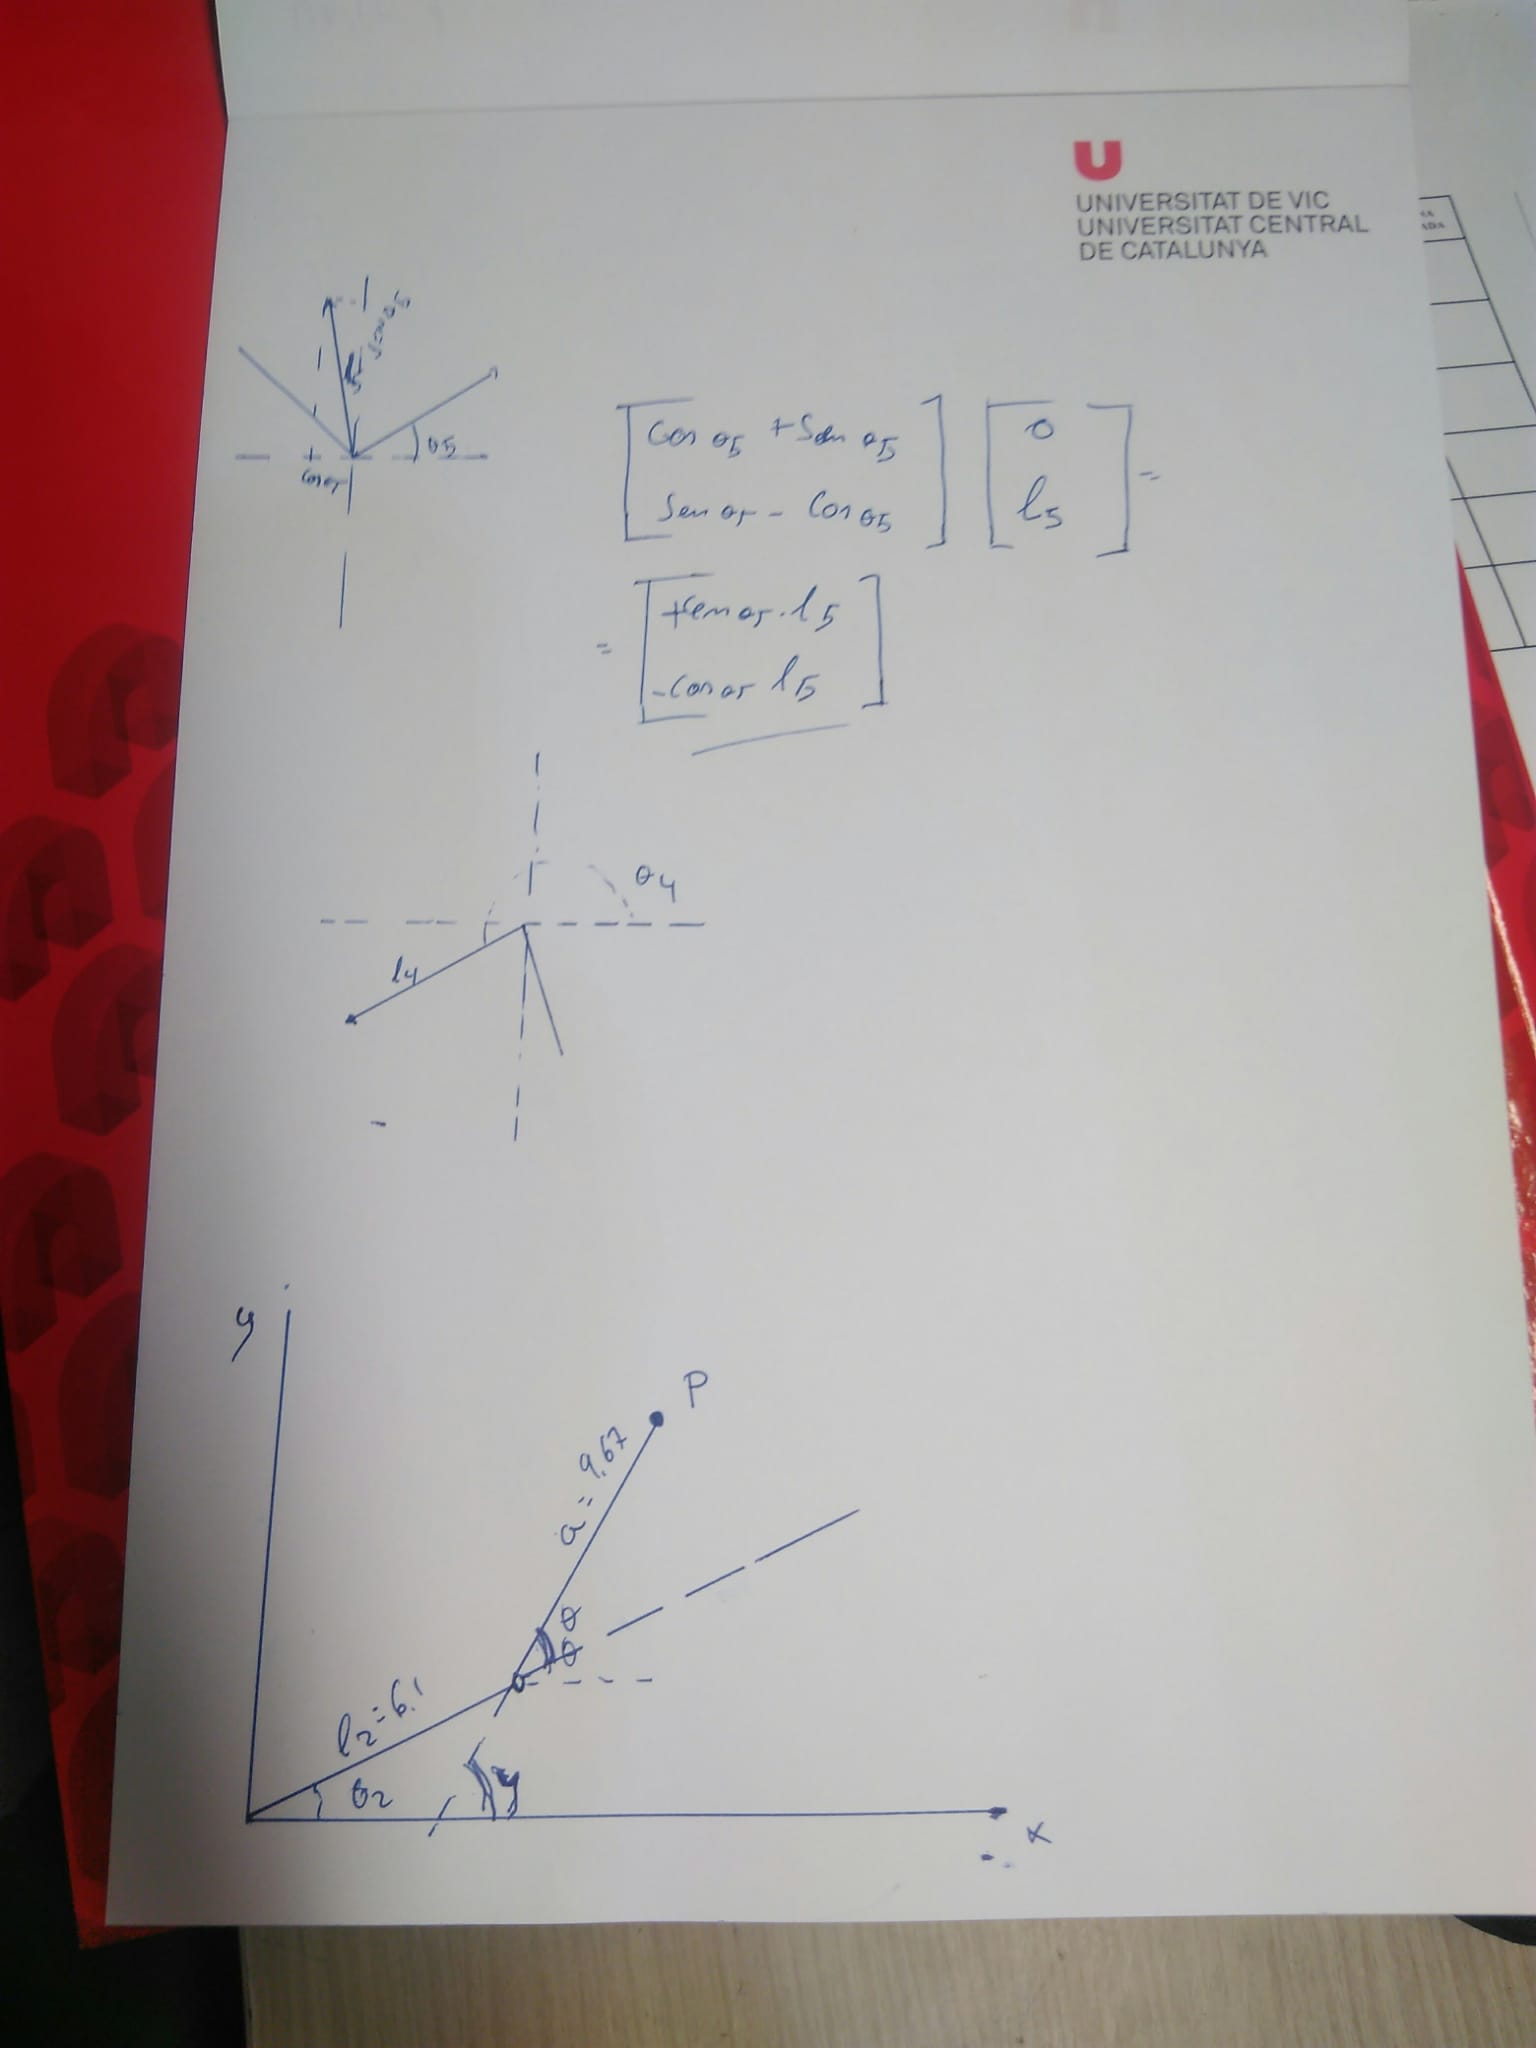 U
UNIVERSITAT DE VIC
UNIVERSITAT CENTRAL
DE CATALUNYA
l5 senθ5
θ5
cosθ5
[ cosθ5 +senθ5 ] [ 0 ] =
[ senθ5 - cosθ5 ] [ l5 ]
= [ +senθ5 . l5 ]
[ -cosθ5 l5 ]
θ4
l4
y
P
a = 9.67
θ
θ
l2 = 6.1
θ2
x